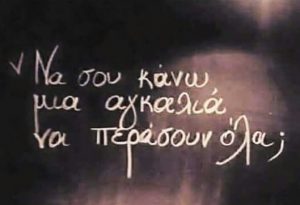 Να σου κάνω
μια αγκαλιά
να περάσουν όλα;